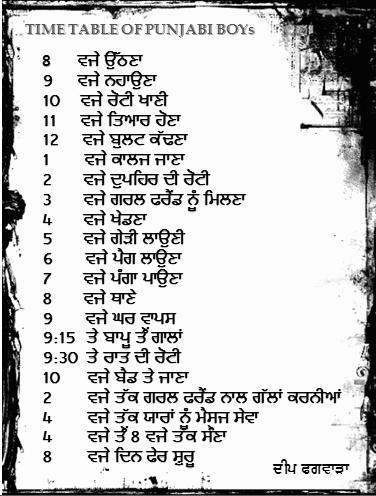 TIME TABLE OF PUNJABI BOYs
8 ਵਜੇ ਉੱਠਣਾ
9 ਵਜੇ ਨਹਾਉਣਾ
10 ਵਜੇ ਰੋਟੀ ਖਾਣੀ
11 ਵਜੇ ਤਿਆਰ ਹੋਣਾ
12 ਵਜੇ ਬੁਲਟ ਕੱਢਣਾ
1 ਵਜੇ ਕਾਲਜ ਜਾਣਾ
2 ਵਜੇ ਦੁਪਹਿਰ ਦੀ ਰੋਟੀ
3 ਵਜੇ ਗਰਲ ਫਰੈਂਡ ਨੂੰ ਮਿਲਣਾ
4 ਵਜੇ ਖੇਡਣਾ
5 ਵਜੇ ਗੇੜੀ ਲਾਉਣੀ
6 ਵਜੇ ਪੈਗ ਲਾਉਣਾ
7 ਵਜੇ ਪੰਗਾ ਪਾਉਣਾ
8 ਵਜੇ ਥਾਣੇ
9 ਵਜੇ ਘਰ ਵਾਪਸ
9:15 ਤੇ ਬਾਪੂ ਤੋਂ ਗਾਲਾਂ
9:30 ਤੇ ਰਾਤ ਦੀ ਰੋਟੀ
10 ਵਜੇ ਬੈਡ ਤੇ ਜਾਣਾ
2 ਵਜੇ ਤੱਕ ਗਰਲ ਫਰੈਂਡ ਨਾਲ ਗੱਲਾਂ ਕਰਨੀਆਂ
4 ਵਜੇ ਤੱਕ ਯਾਰਾਂ ਨੂੰ ਮੈਸਜ ਸੇਵਾ
4 ਵਜੇ ਤੋਂ 8 ਵਜੇ ਤੱਕ ਸੌਣਾ
8 ਵਜੇ ਦਿਨ ਫੇਰ ਸ਼ੁਰੂ
ਦੀਪ ਫਗਵਾੜਾ